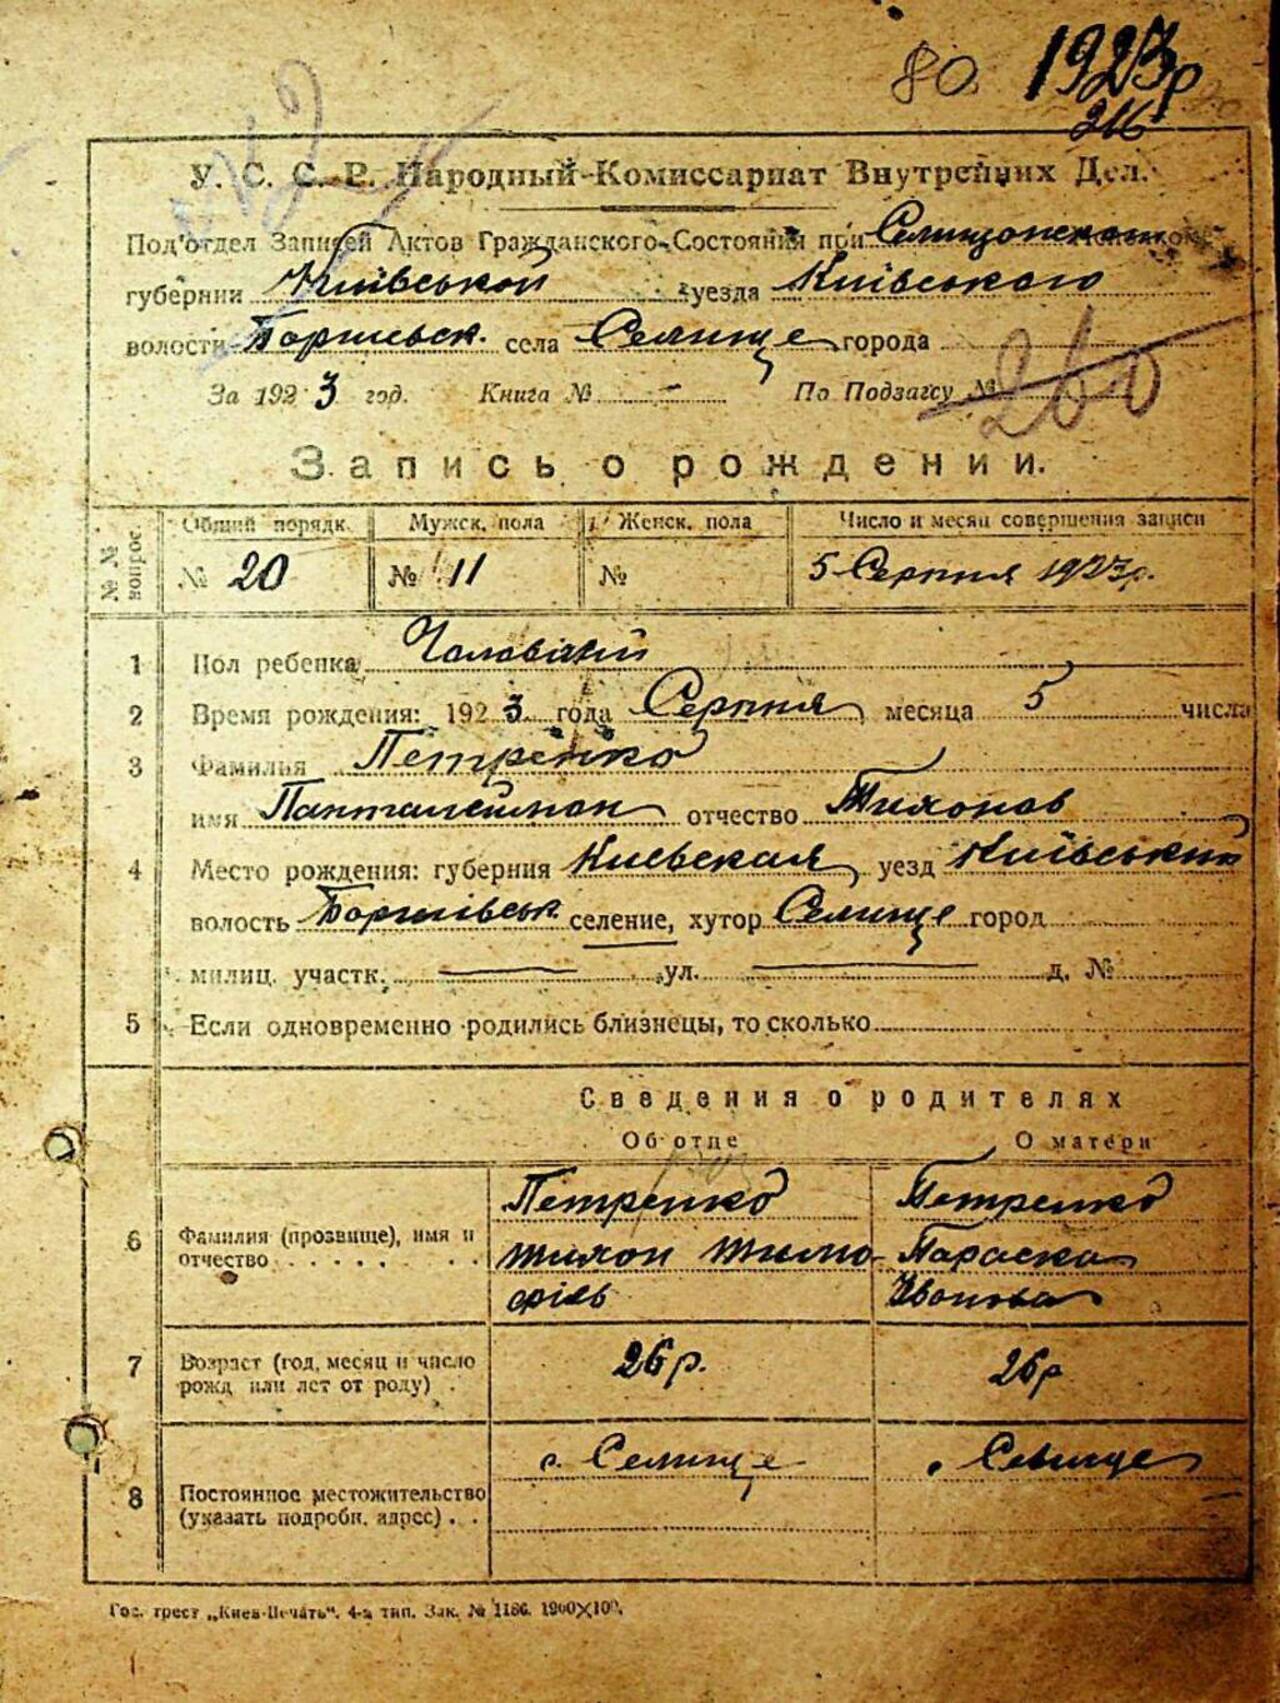 80. 1923р
216
№3
У. С. С. Р. Народный Комиссариат Внутренних Дел.
Под'отдел Записей Актов Гражданского Состояния при
губернии Київської уезда Київського
волости села Селище города
За 1923 год. Книга № — По Подзагсу № 260
Запись о рождении.
№№ вопрос. Общий порядк. Мужск. пола Женск. пола Число и месяц совершения записи
№ 20 № 11 № 5 Серпня 1923р.
1 Пол ребенка Чоловічий
2 Время рождения: 1923 года Серпня месяца 5 числа
3 Фамилья Петренко
имя Панталеймон отчество Тихонов
4 Место рождения: губерния Киевская уезд Київський
волость селение, хутор Селище город
милиц. участк. — ул. — д. №
5 Если одновременно родились близнецы, то сколько
Сведения о родителях
Об отце О матери
Петренко Петренко
6 Фамилия (прозвище), имя и отчество Тихон Тимо- Параска
фієв Иванова
7 Возраст (год, месяц и число рожд или лет от роду) 26р. 26р
с. Селище с. Селище
8 Постоянное местожительство
(указать подробн. адрес)
Гос. трест „Киев-Печать". 4-я тип. Зак. № 1186. 1900×100.